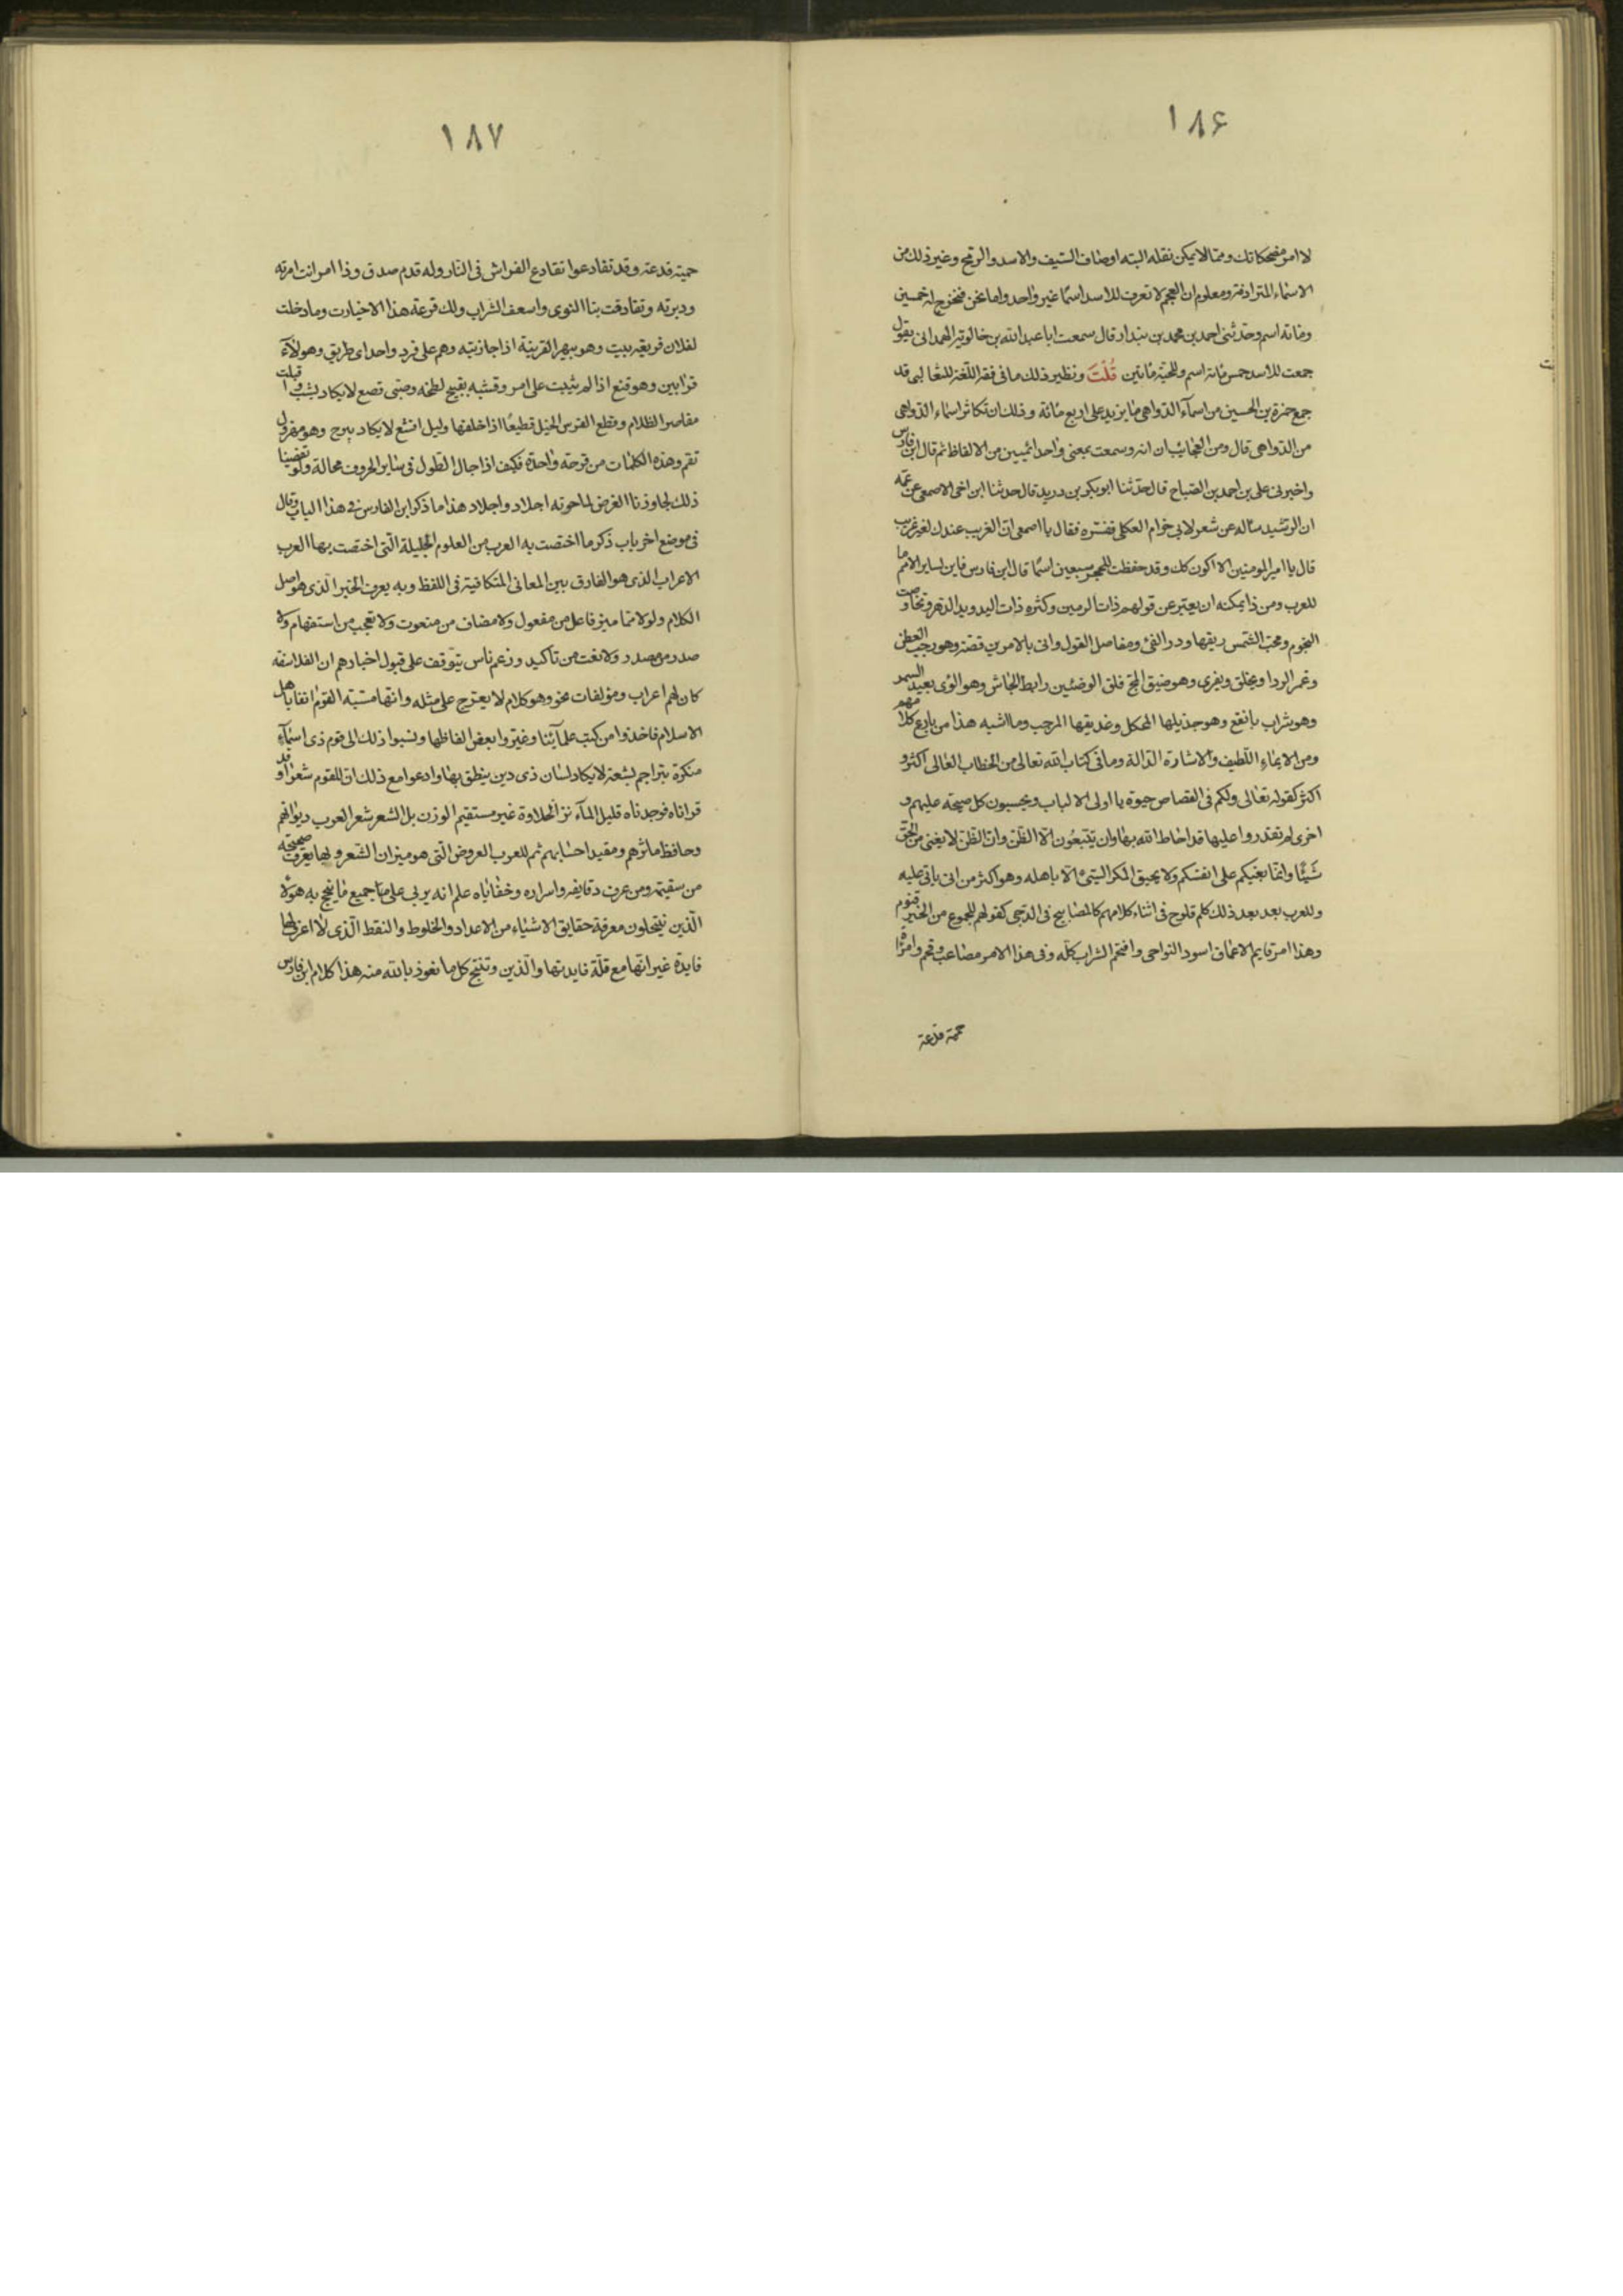 ١٨۶
لا امن مضحكاتك ومما لا يمكن نقله البته اوصاف السّيف والاسد والرمح وغير ذلك من
الاسماء المترادفة ومعلوم ان العجم لا تعرف للاسد اسمًا غير واحد واما نحن فنخرج له خمسين
ومائة اسم وحدثنى احمد بن محمد بن بندار قال سمعت ابا عبد الله بن خالويه الهمدانى يقول
جمعت للاسد خمس مائة اسم وللحيّة مائتين قُلْتَ ونظير ذلك ما فى فقه اللّغة للثعالبى قد
جمع حمزة بن الحسين من اسمآء الدّواهى ما يزيد على اربع مائة وذلك ان تكاثر اسماء الدّواهى
من الدّواهى قال ومن العجائب ان امة وسمت بمعنى واحد بمئين من الالفاظ ثم قال ابن فارس
واخبرنى على بن احمد بن الصّباح قال حدّثنا ابو بكر بن دريد قال حدثنا ابن اخى الاصمعى عن عمّه
ان الرّشيد ساله عن شعر لابى خزام العكلى ففسّره فقال يا اصمعى انّ الغريب عندك لغير غريب
قال يا امير المومنين الا اكون كك وقد حفظت للحجر سبعين اسمًا قال ابن فارس فاين لساير الامم ما
للعرب ومن ذا يمكنه ان يعبّر عن قولهم ذات الزمين وكثره ذات اليد ويد الدّهر وتخاوصت
النجوم ومجّت الشّمس ريقها ودر الفئ ومفاصل القول واتى بالامر من فصّه وهو رحب العطن
وغمر الردا ويخلق ويفرى وهو ضيق المجمّ قلق الوضئين رابط الجاش وهو الوى بعيد السمر
وهو شراب بانقع وهو جذيلها المحكك وعذيقها المرجب وما اشبه هذا من بارع كلامهم
ومن الايماءِ اللّطيف والاشارة الدّالة وما فى كتاب الله تعالى من الخطاب العٰالى اكثر و
اكثر كقوله تعٰالى ولكم فى القصاص حيوٰة يا اولى الالباب ويحسبون كل صيحة عليهم و
اخرى لم تقدروا عليها قد احاط الله بها وان يتّبعُون الّا الظّن وانّ الظّنّ لا يغنى من الحقّ
شَيْئًا وانّما بغيكم على انفسكم ولا يحيق المكر السّيئ الّا باهله وهو اكثر من ان ياتى عليه
وللعرب بعد بعد ذلك كلم تلوح فى اثناء كلامهم كالمصابيح فى الدّجى كقولهم للجموع من الخير قثوم
وهذا امر قايم الاعماق اسود النواحى واقتحم الشراب كلّه وفى هذا الامر مصاعب وقحم وامرأة
حمية قدعة
١٨٧
حمية قدعة وقد تقادعوا تقادع الفراش فى النّار وله قدم صدق وذا امر انت امرته
ودبرته وتقاذفت بنا النوى واسعف الشّراب ولك قرعة هذا الاختيار وما دخلت
لفلان قريعة بيت وهو يبهر القرينة اذا جاذبته وهم على قرو واحد اى طريق وهؤلآءِ
قرابين وهو قنع اذا لم يثبت على امر وقشبه بقبيح لطخه وصبى قصع لا يكاد يشب واقبلت
مقاصر الظلام وقطع الفرس الخيل قطيعًا اذا خلفها وليل اقعس لا يكاد يبرح وهو منزول
تقم وهذه الكلمات من قرحة واحدة فكيف اذا جال الطول فى سٰاير الحروف مجاله ولو تقصّينا
ذلك لجاوزنا الغرض لما حوته اجلاد واجلاد هذا ما ذكر ابن الفارس فى هذا الباب وقال
فى موضع اخر باب ذكر ما اختصت به العرب من العلوم الجليلة الّتى اختصت بها العرب
الاعراب الذى هو الفارق بين المعانى المتكافية فى اللفظ وبه يعرف الخبر الّذى هو اصل
الكلام ولولا ما ميز فاعل من مفعول ولا مضاف من منعوت ولا تعجب من استفهام ولا
صدر من مصدر ولا نعت من تاكيد وزعم ناس يتوقف على قبول اخبارهم ان الفلاسفه
كان لهم اعراب ومؤلفات نحو وهو كلام لا يعرّج على مثله وانّما تشبه القوم انفا باهل
الاسلام فاخذوا من كتب علمآئنا وغيّروا بعض الفاظها ونسبوا ذلك الى قوم ذى اسمآءِ
منكرة بتراجم بشعة لا يكاد لسان ذى دين ينطق بها وادعوا مع ذلك انّ للقوم شعرًا وقد
قراناه فوجدناه قليل المآء نزر الحلاوة غير مستقيم الوزن بل الشعر شعر العرب ديوانهم
وحافظ مآثرهم ومقيد احسابهم ثم للعرب العروض الّتى هو ميزان الشّعر وبها يعرف صحيحه
من سقيمه ومن عرف دقايقه واسراره وخفٰايٰاه علم انه يربى على جميع مٰا يبجح به هؤلاء
الّذين ينتحلون معرفة حقايق الاشيٰاء من الاعداد والخطوط والنقط الّذى لا اعرف لها
فايدة غير انّها مع قلّة فايدتها والّذين وتنتج كل ما نعوذ بالله منه هذا كلام ابن فارس